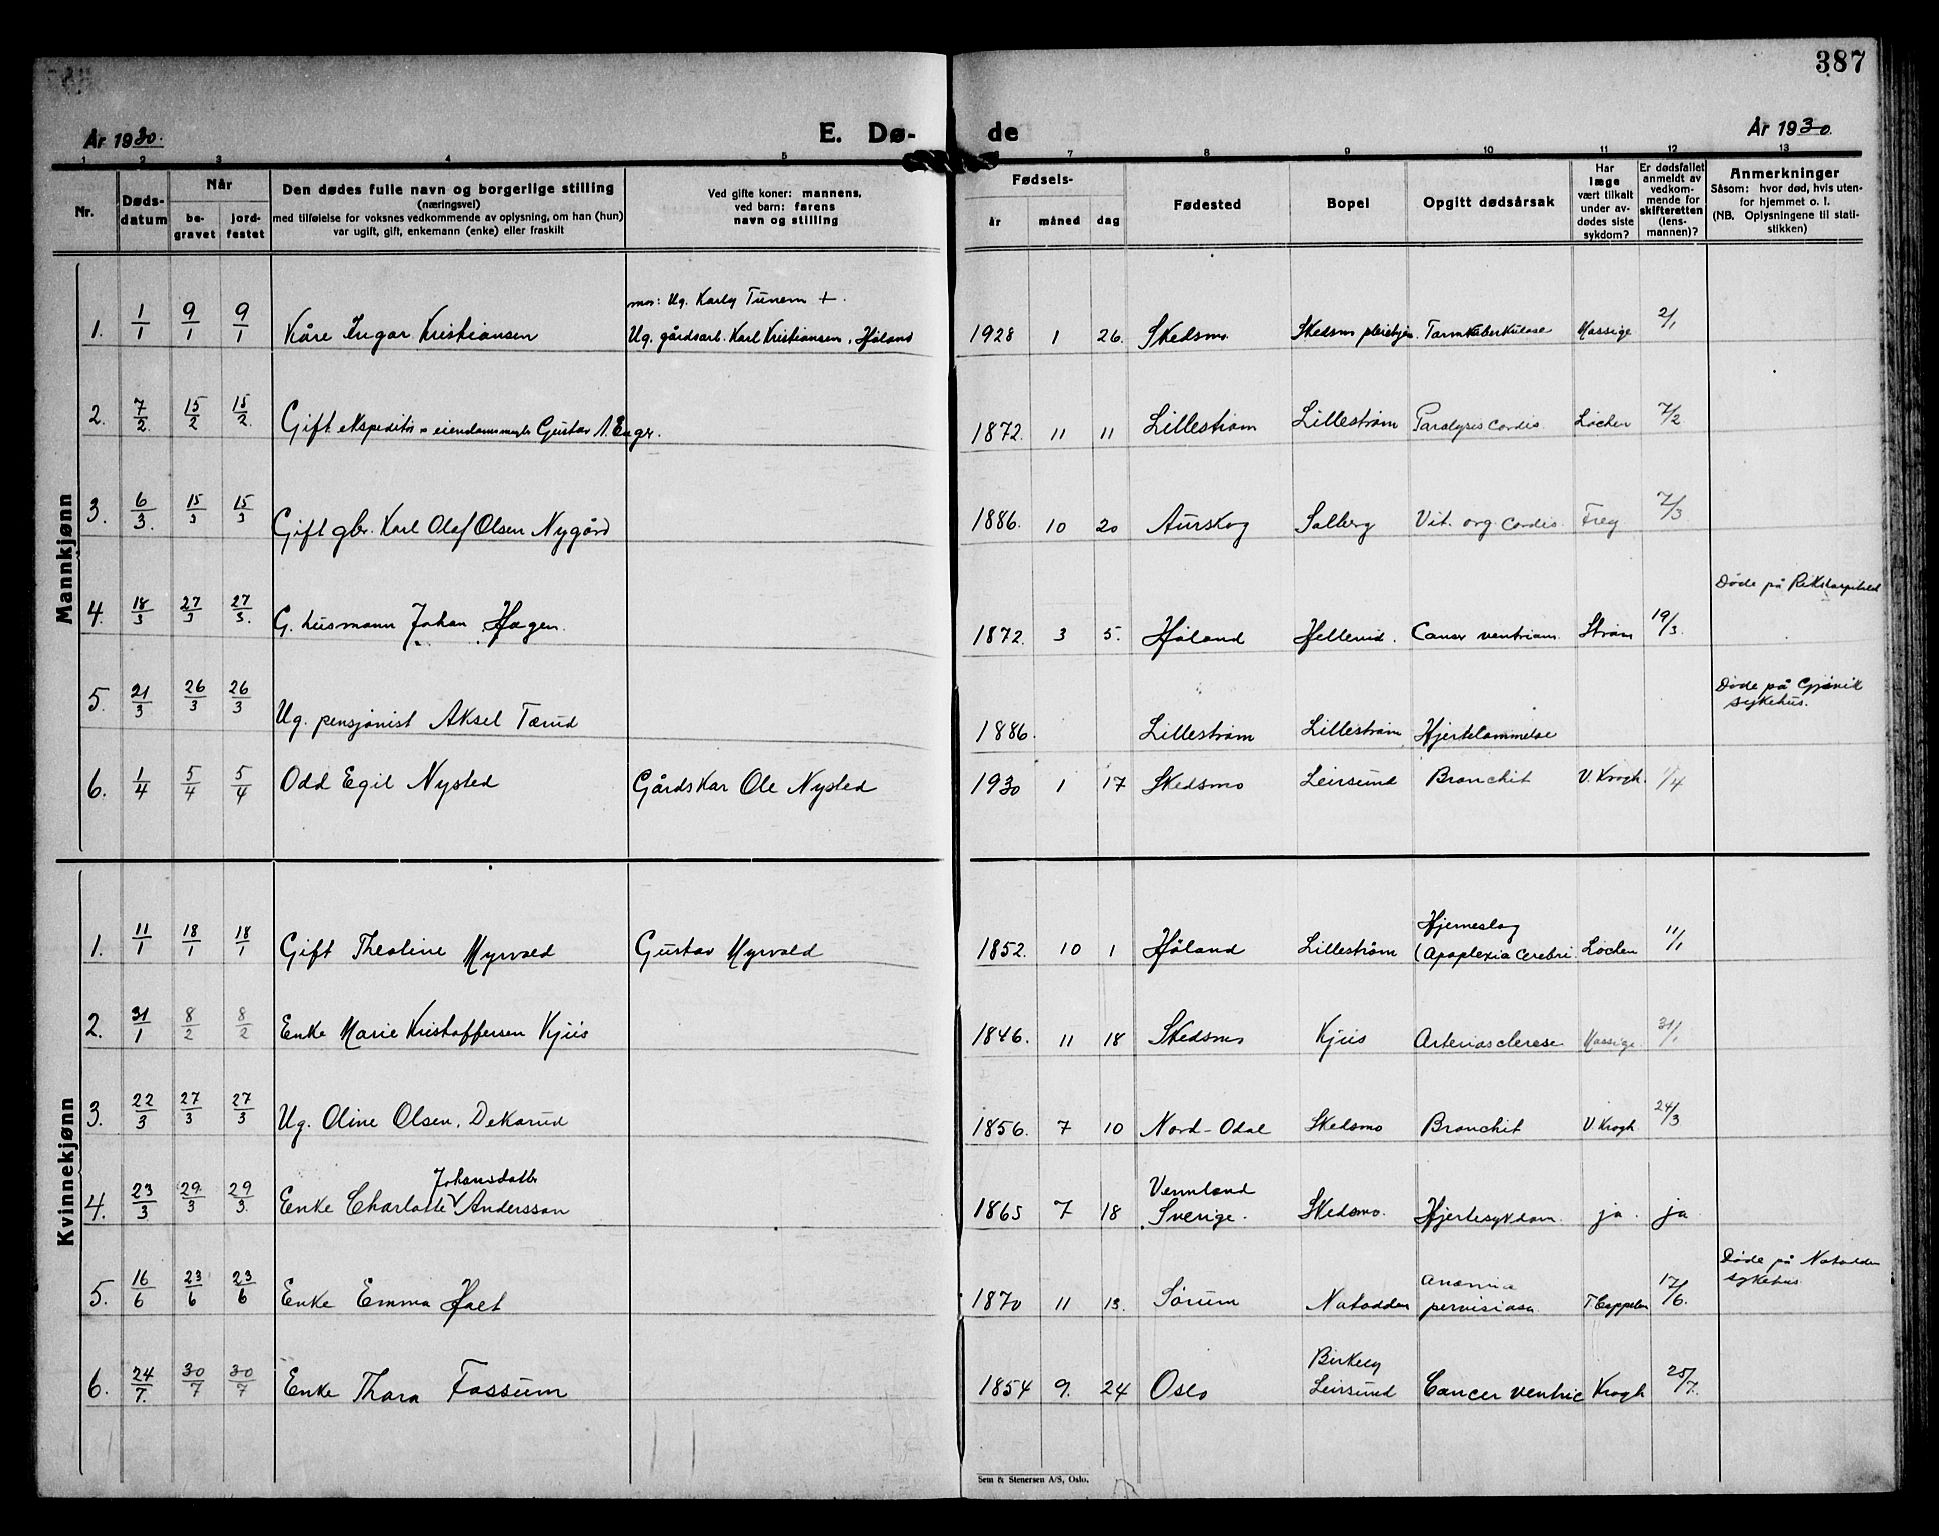 387
År 1930.
E. Dø-
de
År 1930.
1 2 3 4 5 7 8 9 10 11 12 13
Nr.
Døds-
datum
Når
be-
gravet
jord-
festet
Den dødes fulle navn og borgerlige stilling
(næringsvei)
med tilføielse for voksnes vedkommende av oplysning, om han (hun)
var ugift, gift, enkemann (enke) eller fraskilt
Ved gifte koner: mannens,
ved barn: farens
navn og stilling
Fødsels-
år måned dag
Fødested
Bopel
Opgitt dødsårsak
Har
læge
vært tilkalt
under av-
dødes siste
sykdom?
Er dødsfallet
anmeldt av
vedkom-
mende for
skifteretten
(lens-
mannen)?
Anmerkninger
Såsom: hvor død, hvis uten-
for hjemmet o. l.
(NB. Oplysningene til stati-
stikken)
Mannkjønn
mor: Ug. Karly Tunem +.
1. 1/1 9/1 9/1 Kåre Ingar Kristiansen Ug. gårdsarb. Karl Kristiansen, Høland 1928 1 26. Skedsmo. Skedsmo pleiehjem. Tarmtuberkulose Massige 2/1
2. 7/2. 15/2 15/2. Gift ekspeditør Gustav A. Enger. 1872. 11 11 Lillestrøm Lillestrøm Paralysis cordis. Lochen 7/2
3. 6/3. 15/3 15/3 Gift gbr. Karl Olaf Olsen Nygård 1886. 10 20 Aurskog Solberg Vit. org. cordis. Frey 7/3
Døde på Rikshospitalet
4. 18/3 27/3 27/3. G. husmann Johan Hagen. 1872. 3 5. Høland Hellerud. Cancer Strøm 19/3.
Døde på Gjøvik
sykehus.
5. 21/3 26/3 26/3 Ug. pensjonist Aksel Tærud 1886. Lillestrøm Lillestrøm Hjertelammelse
6. 1/4 5/4 5/4 Odd Egil Nysted Gårdskar Ole Nysted 1930 1 17 Skedsmo Leirsund Bronchit V. Krogh. 1/4
Kvinnekjønn
Hjerneslag
1. 11/1 18/1 18/1 Gift Theoline Myrvold Gustav Myrvold 1852. 10 1 Høland Lillestrøm (Apoplexia cerebri Lochen 11/1
2. 31/1 8/2 8/2 Enke Marie Kristoffersen Kjus 1846. 11 18 Skedsmo Kjus Arteriosclerose Massige. 31/1
3. 22/3 27/3 27/3 Ug. Oline Olsen, Dekarud 1856. 7 10 Nord-Odal Skedsmo Bronchit V. Krogh 24/3
Johansdatter
Vermland
4. 23/3 29/3 29/3. Enke Charlotte V Andersson 1865 7 18 Sverige. Skedsmo. Hjertesykdom. ja. ja
Døde på Notodden
sykehus
Anæmia
5. 16/6 23/6 23/6 Enke Emma Holt 1870 11 13. Sørum Notodden perniciosa. T Cappelen 17/6.
Birkely
6. 24/7. 30/7 30/7 Enke Thora Fossum 1854 9. 24 Oslo Leirsund Cancer ventric Krogh 25/7.
Sem & Stenersen A/S, Oslo.